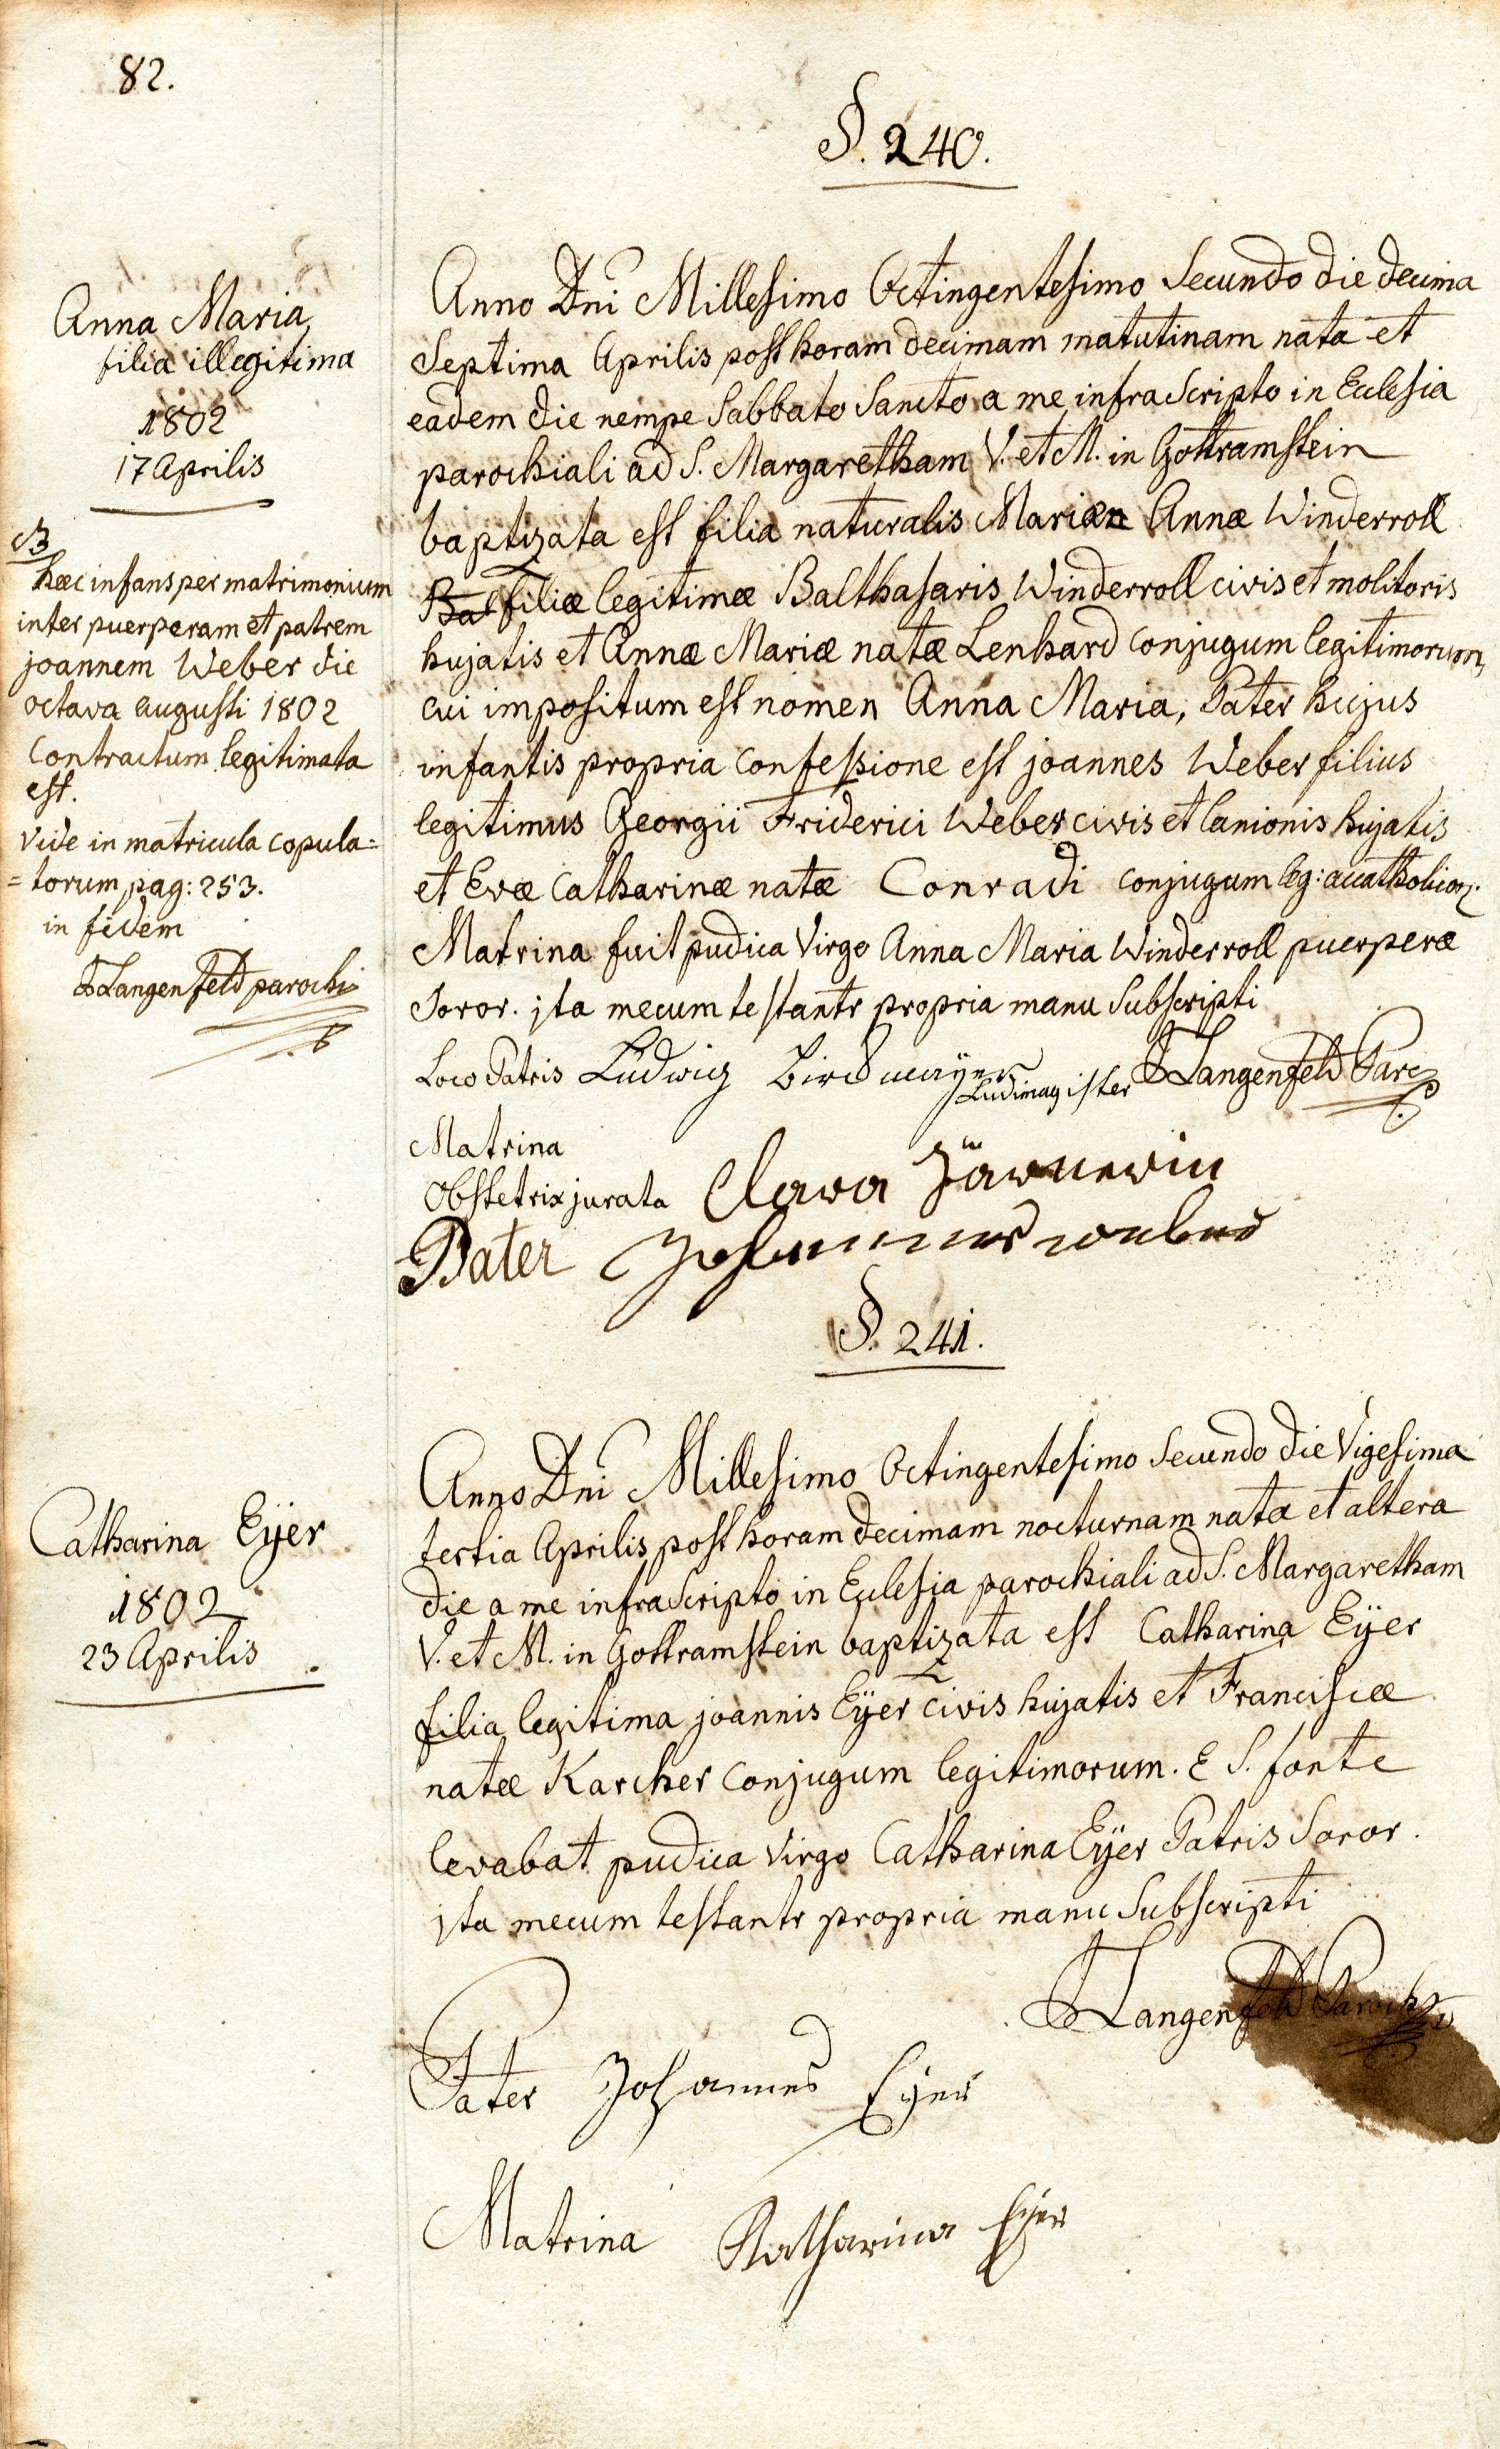 82.
§. 240.
Anna Maria
filia illegitima
1802
17 Aprilis
NB
hæc infans per matrimonium
inter puerperam et patrem
joannem Weber die
octava augusti 1802
Contractum legitimata
est.
Vide in matricula copula=
=torum pag: 253.
in fidem
Langenfeld parochi
Anno Dni Millesimo Octingentesimo Secundo die decima
Septima Aprilis post horam decimam matutinam nata et
eadem die nempe Sabbato Sancto a me infra Scripto in Ecclesia
parochiali ad S. Margaretham V. et M. in Gottramstein
baptizata est filia naturalis Mariæ Annæ Winderroll
Bal filiæ legitimæ Balthasaris Winderroll civis et molitoris
hujatis et Annæ Mariæ natæ Lenhard Conjugum legitimorum,
cui impositum est nomen Anna Maria, Pater hujus
infantis propria Confessione est joannes Weber filius
legitimus Georgii Friderici Weber civis et lanionis hujatis
et Evæ Catharinæ natæ Conradi Conjugum leg: acatholicor.
Matrina fuit pudica Virgo Anna Maria Winderroll puerperæ
Soror. jta mecum testantr propria manu Subscripti
Loco Patris Ludwig Ludimagister Langenfeld Par
Matrina
Obstetrix jurata Clara
Pater Johannes weber
§. 241.
Catharina Eÿer
1802
23 Aprilis
Anno Dni Millesimo Octingentesimo Secundo die Vigesima
tertia Aprilis post horam decimam nocturnam nata et altera
die a me infra Scripto in Eclesia parochiali ad S. Margaretham
V. et M. in Gottramstein baptizata est Catharina Eÿer
filia legitima joannis Eÿer civis hujatis et Franciscæ
natæ Karcher Conjugum legitimorum. E S. fonte
levabat pudica Virgo Catharina Eÿer Patris Soror.
jta mecum testantr propria manu Subscripti
Langenfeld Paroch
Pater Johannes Eÿer
Matrina Katharina Eÿer